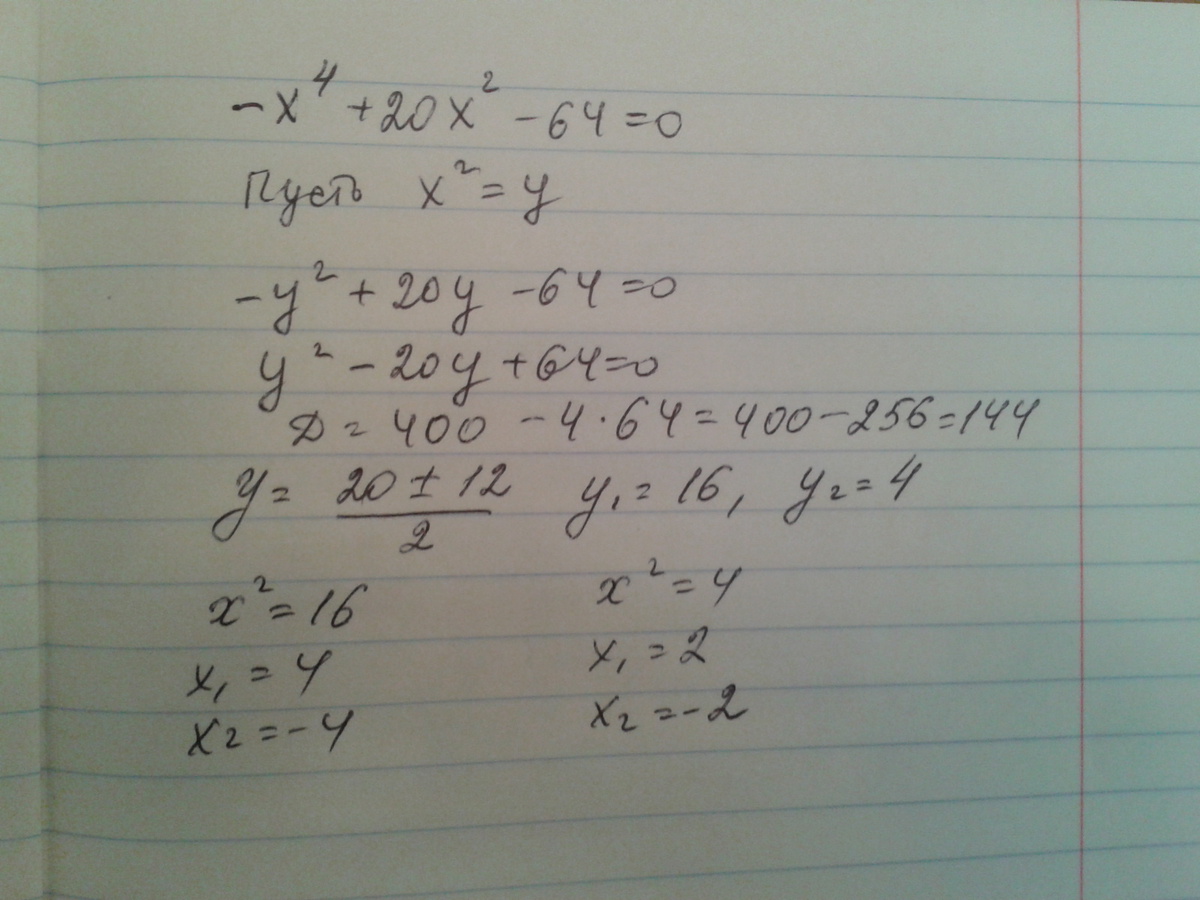 -x⁴ + 20x² - 64 = 0
Пусть x² = y
-y² + 20y - 64 = 0
y² - 20y + 64 = 0
D = 400 - 4 · 64 = 400 - 256 = 144
y = (20 ± 12)/2 y₁ = 16, y₂ = 4
x² = 16 x² = 4
x₁ = 4 x₁ = 2
x₂ = -4 x₂ = -2